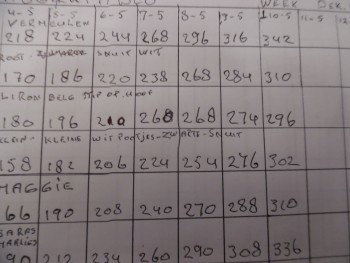 WEEK DEK.
4-5 5-5 6-5 7-5 8-5 9-5 10-5 11-5 12
VERMEULEN
218 224 244 268 296 316 342
ZWARDE SNUIT WIT
170 186 220 238 268 284 310
BELG STIP OP. HOOF
180 196 210 268 268 274 296
KLEIN- KLEINE WIT POOTJES-ZWARTE-SNUIT
158 182 206 224 254 276 302
MAGGIE
66 190 208 240 270 288 310
SARAS
MARLIES
90 212 234 260 290 308 336